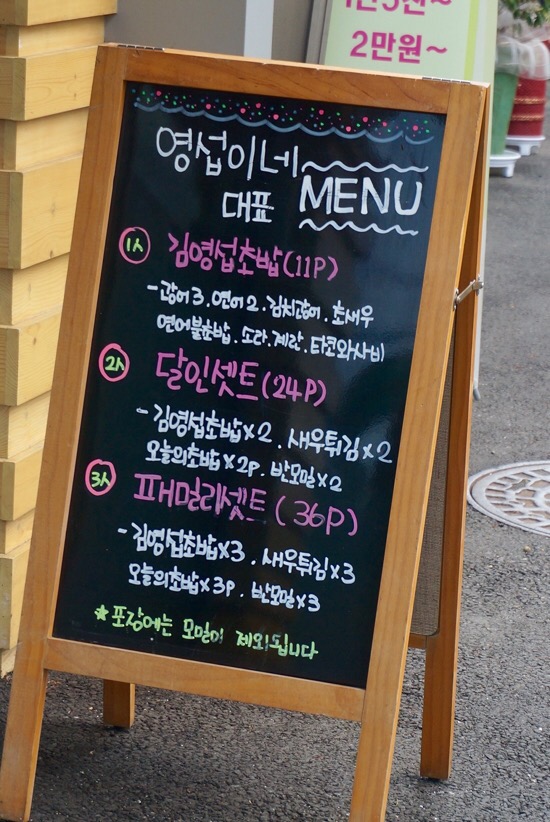 2만원~
영섭이네
대표 MENU
1人 김영섭초밥(11P)
-광어3. 연어2. 김치광어. 초새우
연어불초밥. 소라. 계란. 타코와사비
2人 달인셋트(24P)
-김영섭초밥x2. 새우튀김x2
오늘의초밥x2p. 반모밀x2
3人 패밀리셋트(36P)
-김영섭초밥x3. 새우튀김x3
오늘의초밥x3p. 반모밀x3
★포장에는 모밀이 제외됩니다